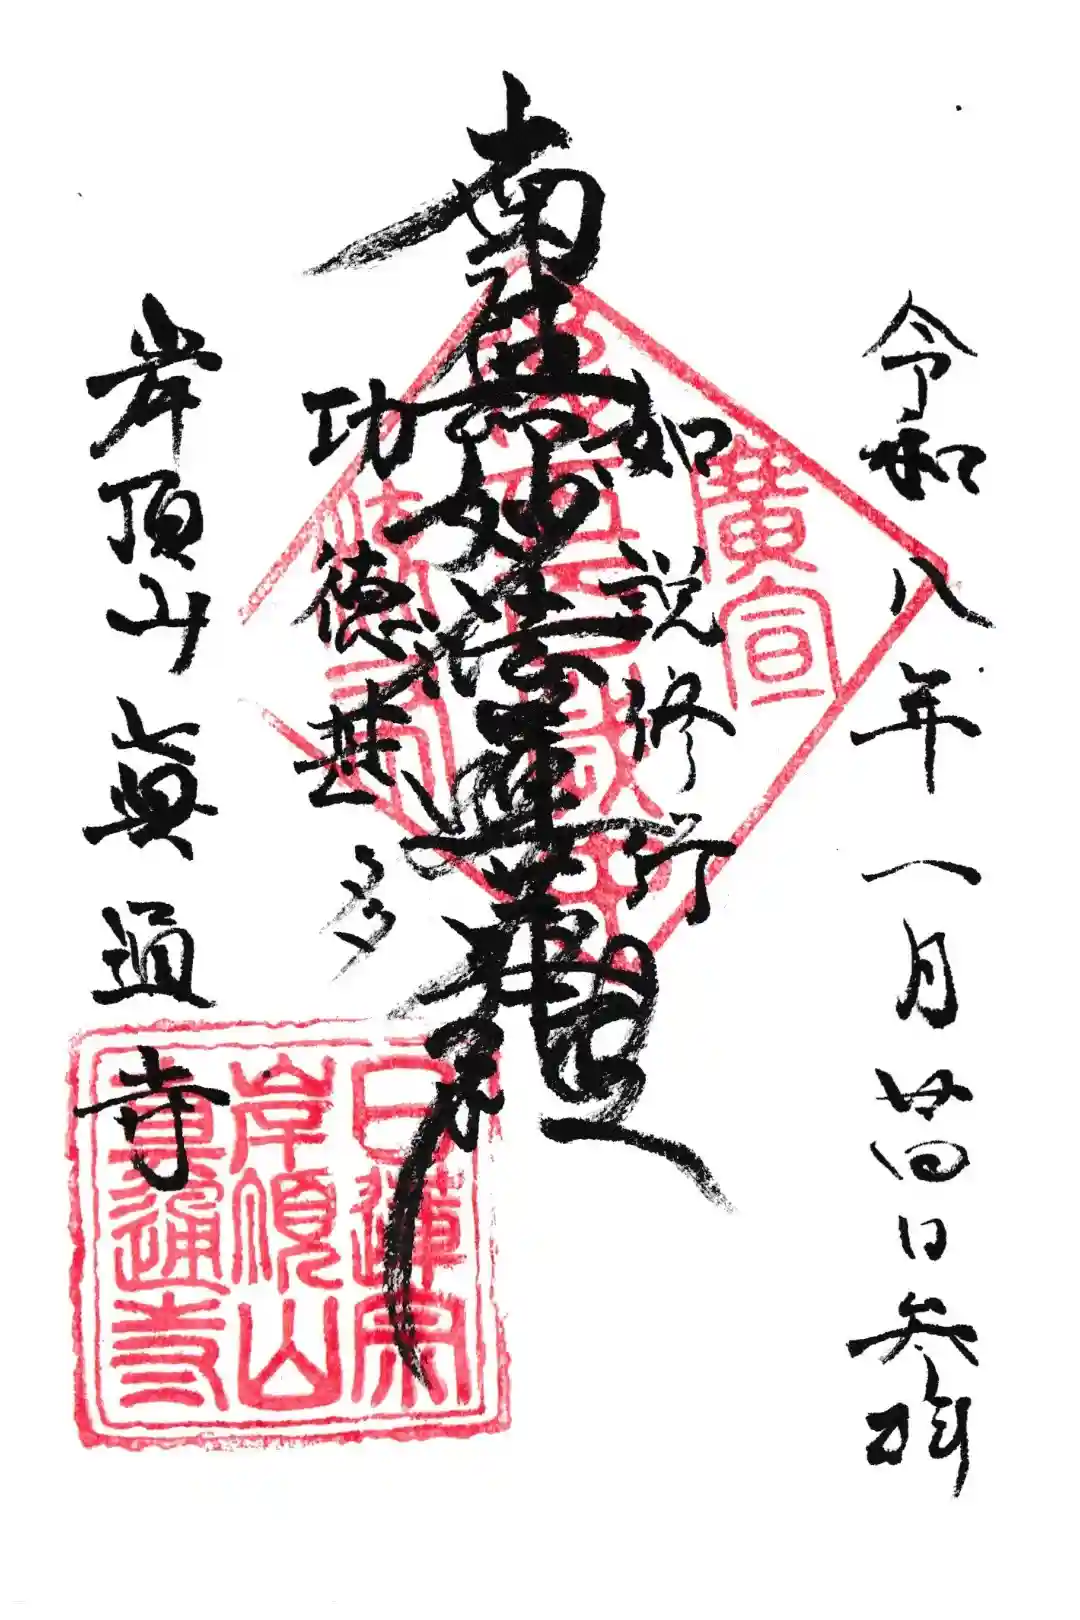 令和八年一月廿四日参拝
如説修行
南無妙法蓮華經
功徳甚多
岸頂山 眞通寺
廣宣
流布
日蓮宗
岸頂山
眞通寺